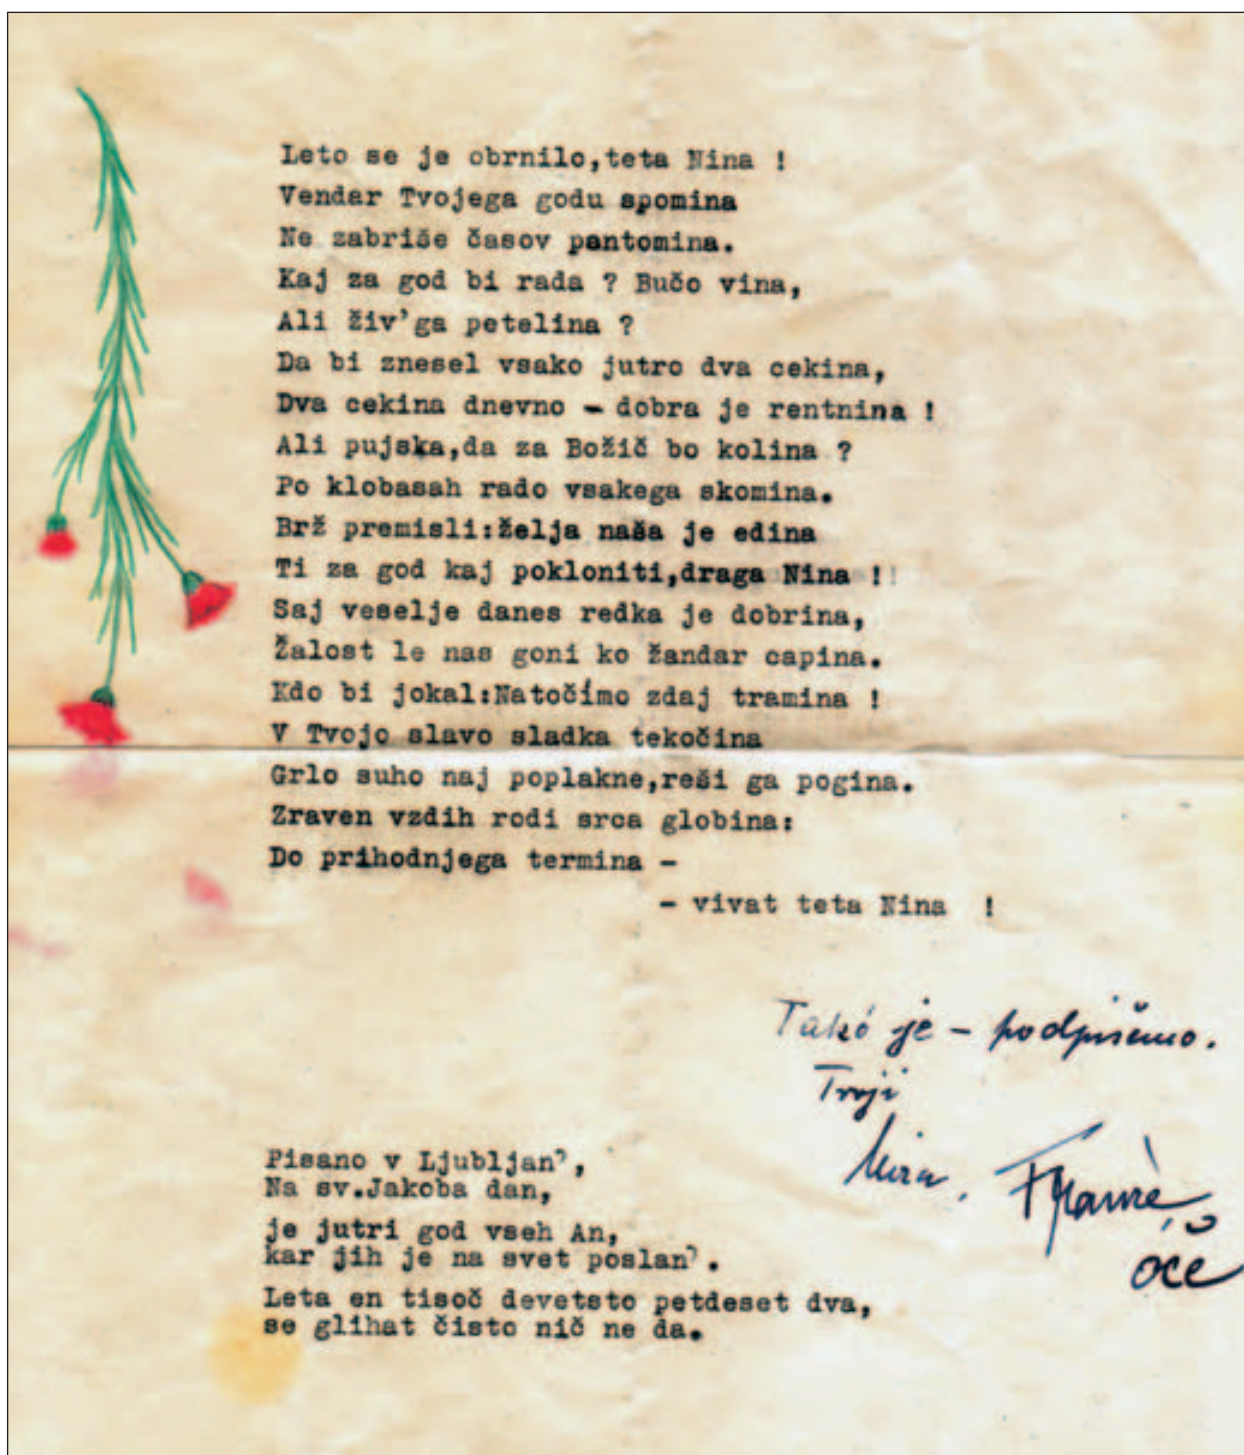 Leto se je obrnilo,teta Nina !
Vendar Tvojega godu spomina
Ne zabriše časov pantomina.
Kaj za god bi rada ? Bučo vina,
Ali živ'ga petelina ?
Da bi znesel vsako jutro dva cekina,
Dva cekina dnevno - dobra je rentnina !
Ali pujska,da za Božič bo kolina ?
Po klobasah rado vsakega skomina.
Brž premisli:želja naša je edina
Ti za god kaj pokloniti,draga Nina !
Saj veselje danes redka je dobrina,
Žalost le nas goni ko žandar capina.
Kdo bi jokal:Natočimo zdaj tramina !
V Tvojo slavo sladka tekočina
Grlo suho naj poplakne,reši ga pogina.
Zraven vzdih rodi srca globina:
Do prihodnjega termina -
- vivat teta Nina !
Takó je - podpišemo.
Tvoji
oče
Pisano v Ljubljan',
Na sv.Jakoba dan,
je jutri god vseh An,
kar jih je na svet poslan'.
Leta en tisoč devetsto petdeset dva,
se glihat čisto nič ne da.